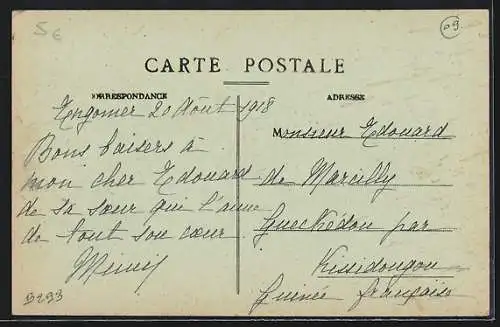 5 €
09
CARTE POSTALE
CORRESPONDANCE
ADRESSE
Engomer 20 Août 1918
Bons baisers à
mon cher Edouard
de sa sœur qui l'aime
de tout son cœur
Mimi
B293
Monsieur Edouard
de Marcilly
Gueckédou par
Kissidougou
Guinée française